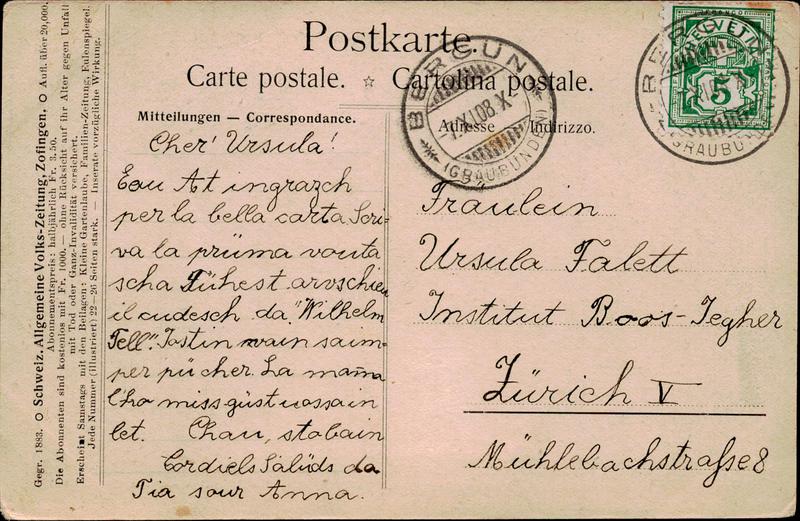 Gegr. 1883. O Schweiz. Allgemeine Volks-Zeitung, Zofingen. O Aufl. über 20,000.
Abonnementspreis: halbjährlich Fr. 3.50.
Die Abonnenten sind kostenlos mit Fr. 1000.— ohne Rücksicht auf ihr Alter gegen Unfall
mit Tod oder Ganz-Invalidität versichert.
Erscheint Samstags mit den Beilagen: Kleine Gartenlaube, Familien-Zeitung, Eulenspiegel.
Jede Nummer (illustriert) 22—26 Seiten stark. — Inserate vorzügliche Wirkung.
Postkarte.
Carte postale. ☆ Cartolina postale.
Mitteilungen — Correspondance.
Adresse — Indirizzo.
Cher' Ursula!
Eau At ingrazch
per la bella carta. Scri-
va la prüma vouta
scha Tühest arvschieu
il cudesch da "Wilhelm
Tell". Tastin wain saim-
per pü cher. La mamma
t'ho miss güst uossa in
let. Chau, sta bain
Cordiels Salüds da
Tia sour Anna.
BERGÜN
(GRAUBÜNDEN)
HELVETIA
5
BERGÜN
(GRAUBÜNDEN)
Fräulein
Ursula Falett
Institut Boos-Jegher
Zürich V
Mühlebachstraße 8